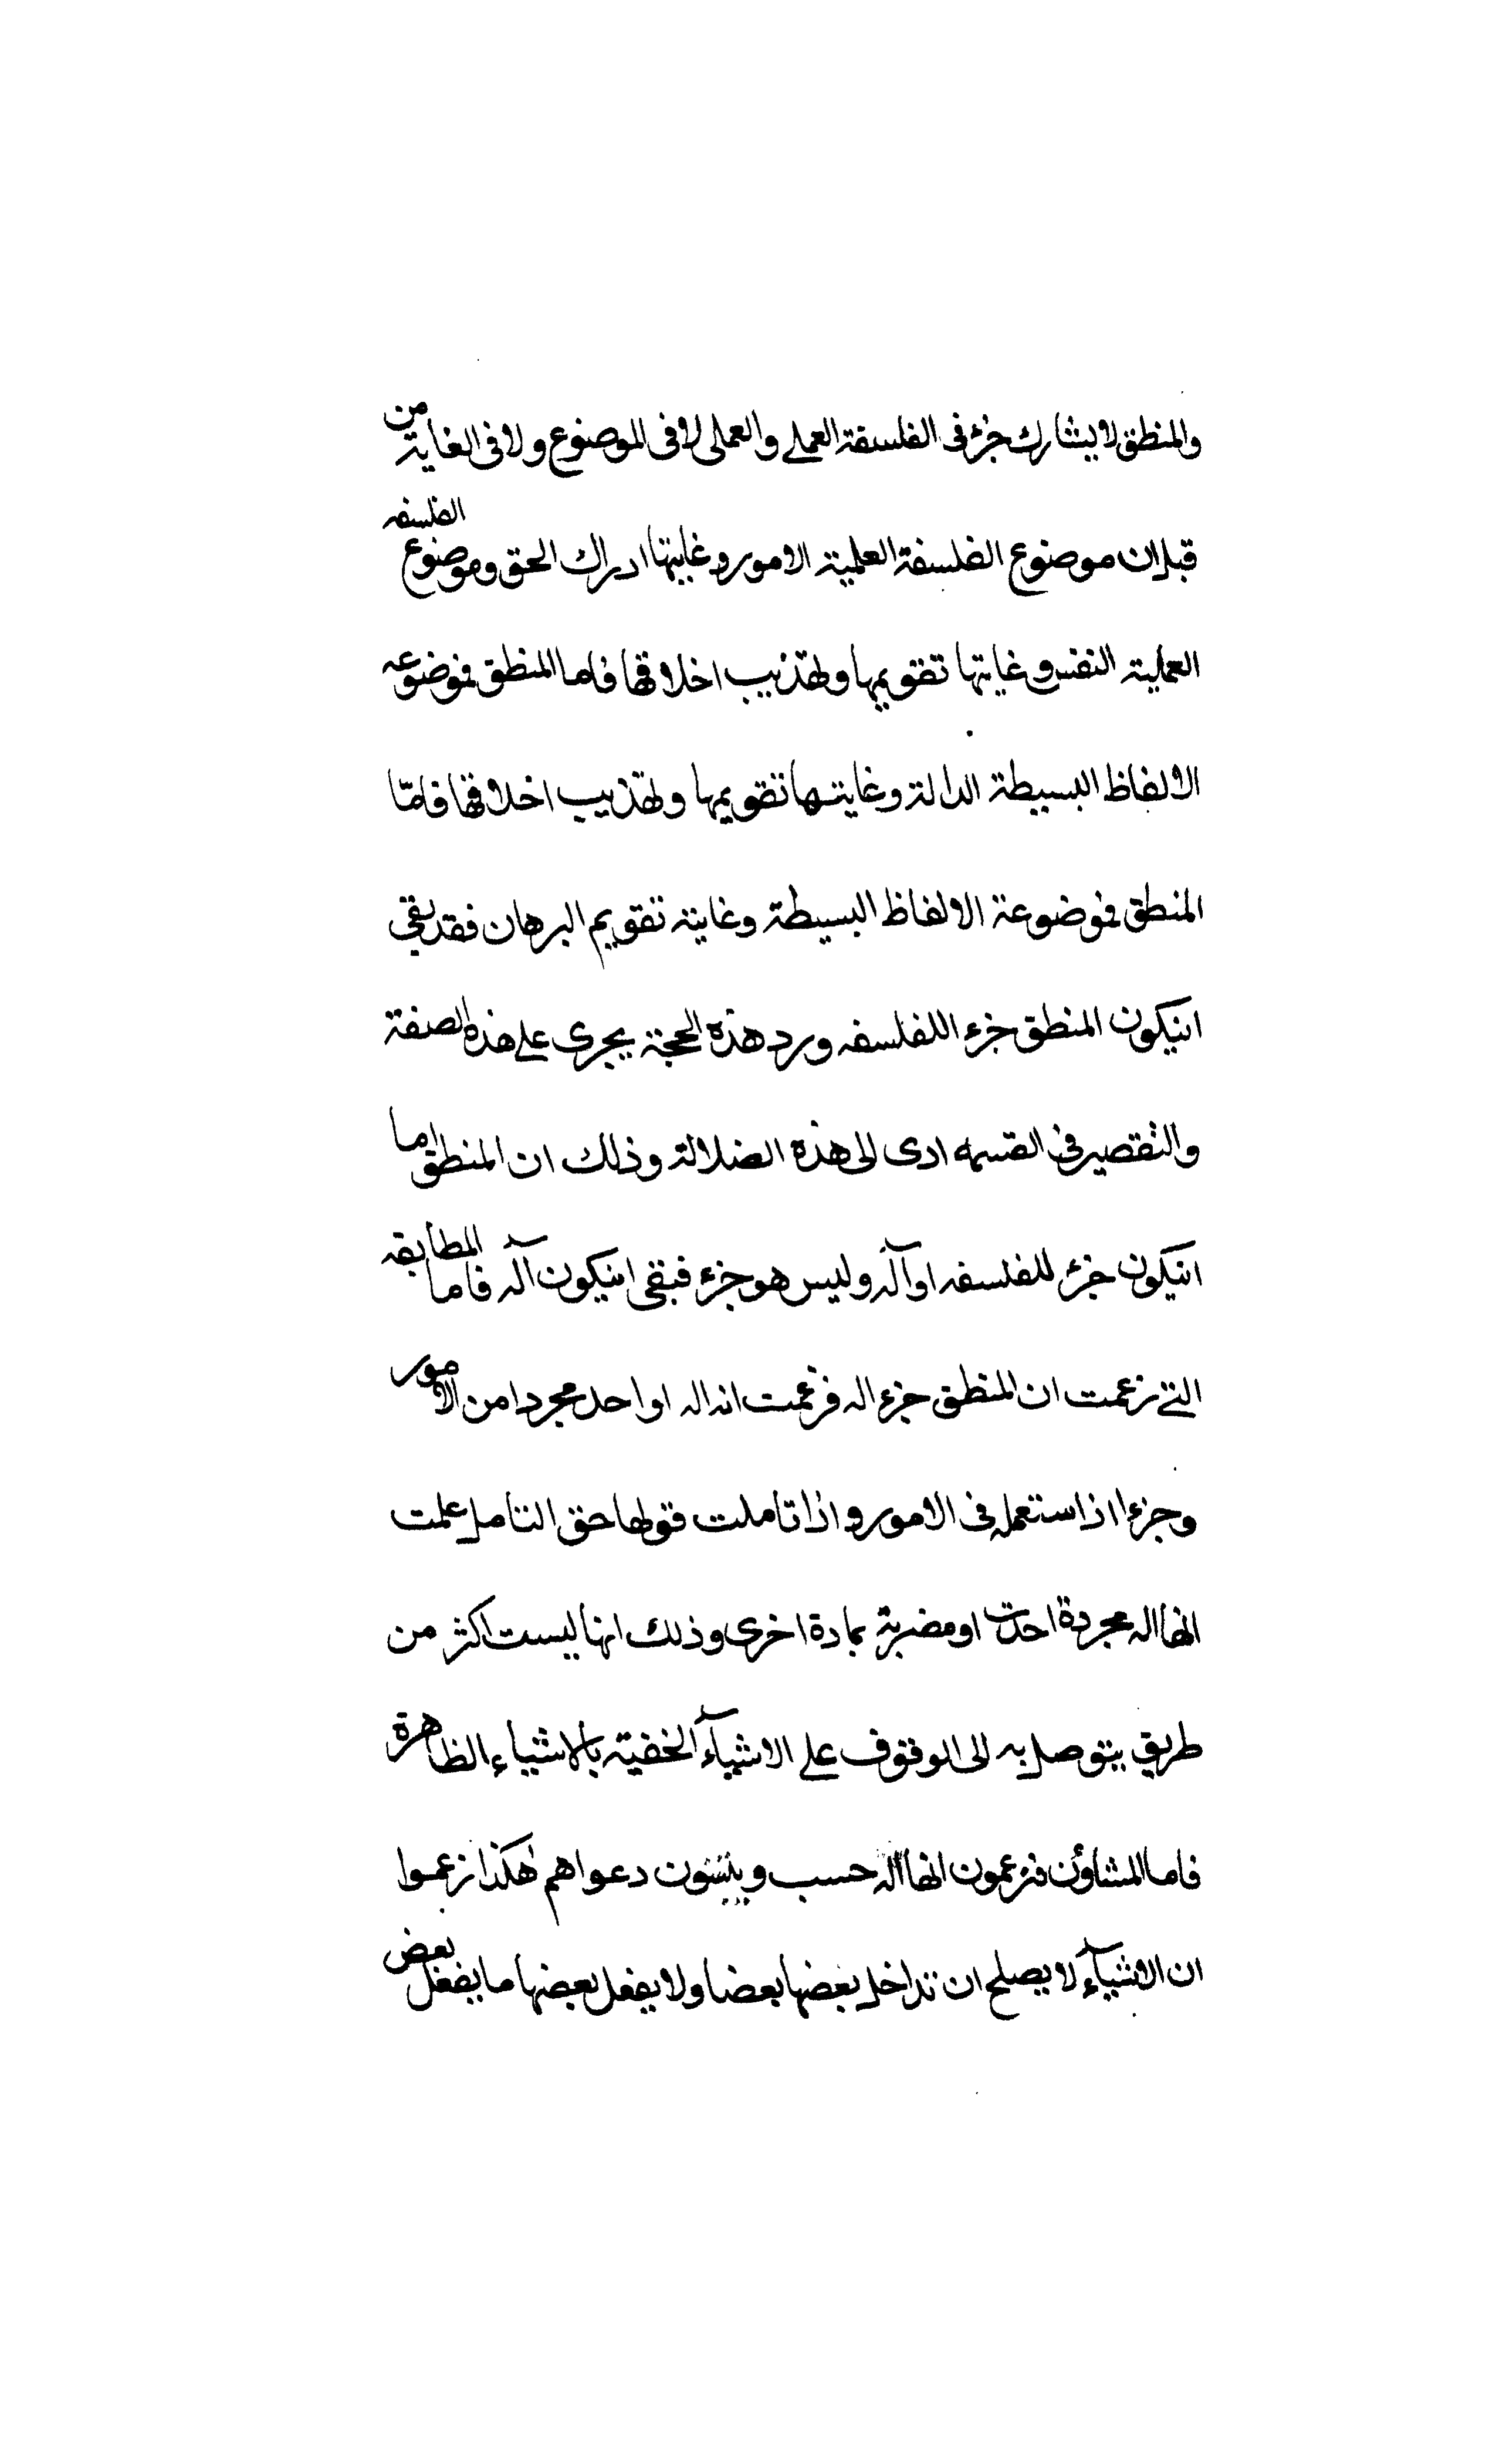 والمنطق لا يشارك جزئ فى الفلسفة العملے والعملى لا فى الموضوع ولا فى الغاية من
قبل ان موضوع الفلسفة العلمية الامور وغايتها ادراك الحق وموضوع الفلسفه
العملية النفس وغايتها تقويمها وتهذيب اخلاقها فاما المنطق فموضوعه
الالفاظ البسيطة الدالة وغايتها تقويمها وتهذيب اخلاقها فامّا
المنطق فموضوعة الالفاظ البسيطة وغاية تقويم البرهان فقد بقى
انيكون المنطق جزء اللفلسفه ورد هذه الحجة يجرى على هذه الصفة
والتقصير فى القسمه ادى الى هذه الضلالة وذلك ان المنطق اما
انيكون جزئ للفلسفه او آله وليس هو جزء فبقى انيكون آله فاما المطابقه
التے زعمت ان المنطق جزء اله فزعمت انه اله اواحد مجردا من الامور
وجزءا اذا ستعمله فى الامور واذا تاملت قولها حق التامل علمت
انها اله مجردة احدت او مضربة بمادة اخرى وذلك انها ليست اكثر من
طريق يتوصل به الى الوقوف على الاشيآء الخفية بالاشياء الظاهرة
فاما المشاؤن فزعمون انها اله حسب ويثبتون دعواهم هكذا زعموا
ان الاشيآء لا يصلح ان تداخل بعضها بعضا ولا يفعل بعضها ما يفعل بعض